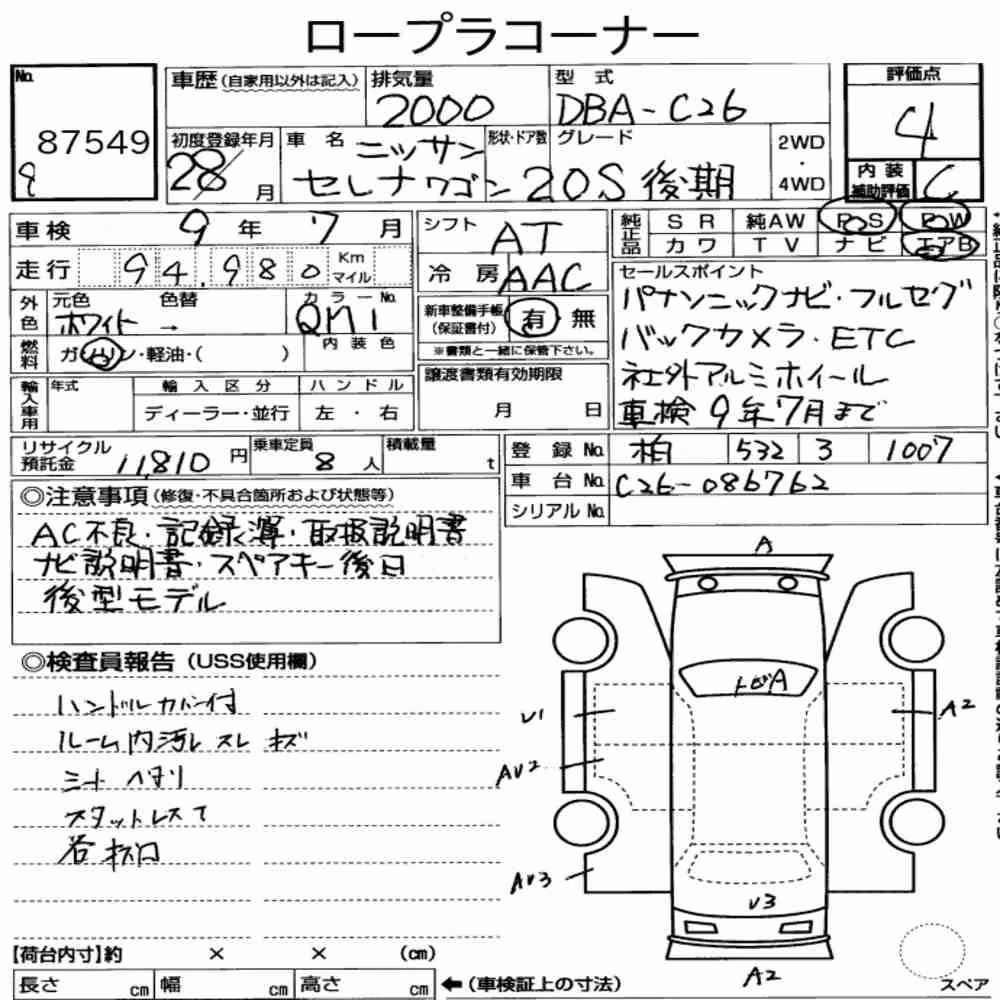 ロープラコーナー
No.
87549
9
車歴(自家用以外は記入)
排気量
2000
型式
DBA-C26
評価点
4
初度登録年月
28/ 月
車名
ニッサン
セレナワゴン
形状・ドア数
グレード
20S後期
2WD
・
4WD
内装
補助評価
C
車検 9年 7月
シフト
AT
純正品
SR 純AW PS PW
カワ TV ナビ エアB
走行 94,980 Km
マイル
冷房 AAC
セールスポイント
パナソニックナビ・フルセグ
バックカメラ・ETC
社外アルミホイール
車検9年7月まで
外色
元色 色替
ホワイト →
カラーNo.
QM1
内装色
新車整備手帳
(保証書付)
有・無
※書類と一緒に保管下さい。
燃料
ガソリン・軽油・( )
譲渡書類有効期限
月 日
輸入車用
年式
輸入区分
ディーラー・並行
ハンドル
左・右
リサイクル
預託金 11,810円
乗車定員
8人
積載量
t
登録No. 柏 532 3 1007
車台No. C26-086762
シリアルNo.
◎注意事項(修復・不具合箇所および状態等)
AC不良・記録簿・取扱説明書
ナビ説明書・スペアキー後日
後型モデル
◎検査員報告(USS使用欄)
ハンドルカバー付
ルーム内汚レスレキズ
シートヘタリ
スタットレスT
各キズ凹
A
トビA
U1
A2
AU2
AU3
U3
A2
スペア
【荷台内寸】約 × × (cm)
長さ cm 幅 cm 高さ cm
←(車検証上の寸法)